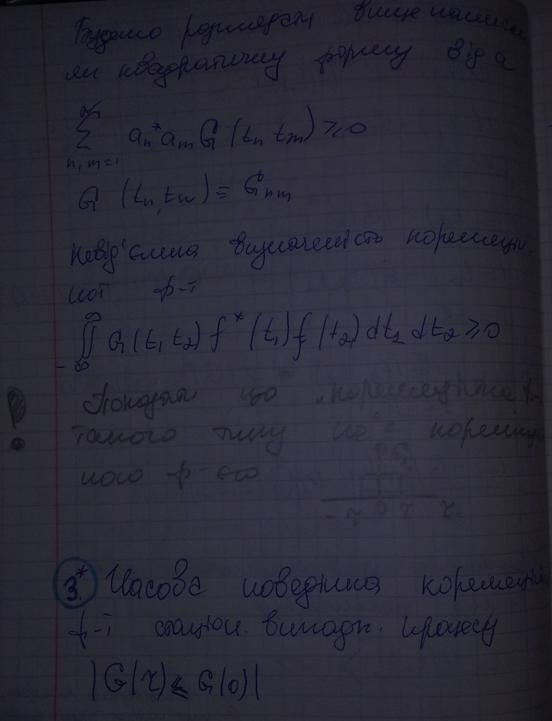 Будемо розглядати вище написан
як квадратичну форму від a
∞ Σ n, m=1 aₙ* aₘ G (tₙ tₘ) ≥ 0
G (tₙ, tₘ) = Gₙₘ
невід'ємна визначеність кореляцій
ної ф-ї
∞ ∬ -∞ G(t₁ t₂) f*(t₁) f(t₂) dt₂ dt₂ ≥ 0
! Показати що кореляційна ф-
такого типу не є кореляц
ного ф-єю
-τ 0 τ τ
3.* Часова поведінка кореляцій
ф-ї стаціон. випадк. процесу
|G(τ) ≤ G(0)|